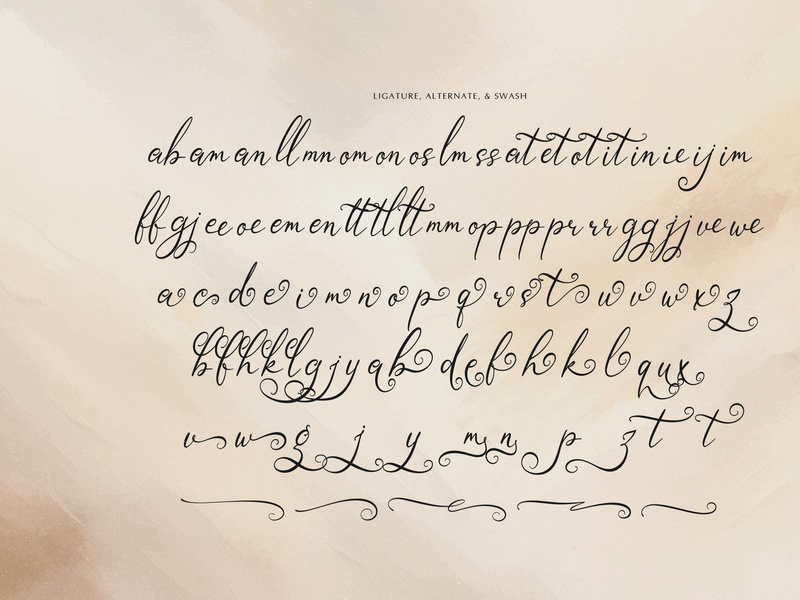 LIGATURE, ALTERNATE, & SWASH
ab am an ll mn om on os lm ss at et ot it in ie ij im
ff gj ee oe em en tt tl lt mm op pp pr rr gg jj ve we
a c d e i m n o p q r s t u v w x z
b f h k l g j y a b d e f h k l q u x
v w g j y m n p z t t